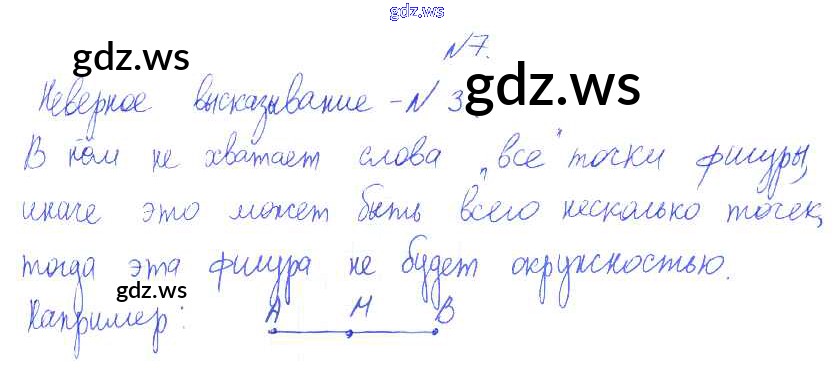 gdz.ws
N7.
gdz.ws
Неверное высказывание - N 3
gdz.ws
В нём не хватает слова „все" точки фигуры,
иначе это может быть всего несколько точек,
тогда эта фигура не будет окружностью.
gdz.ws
Например: A M B